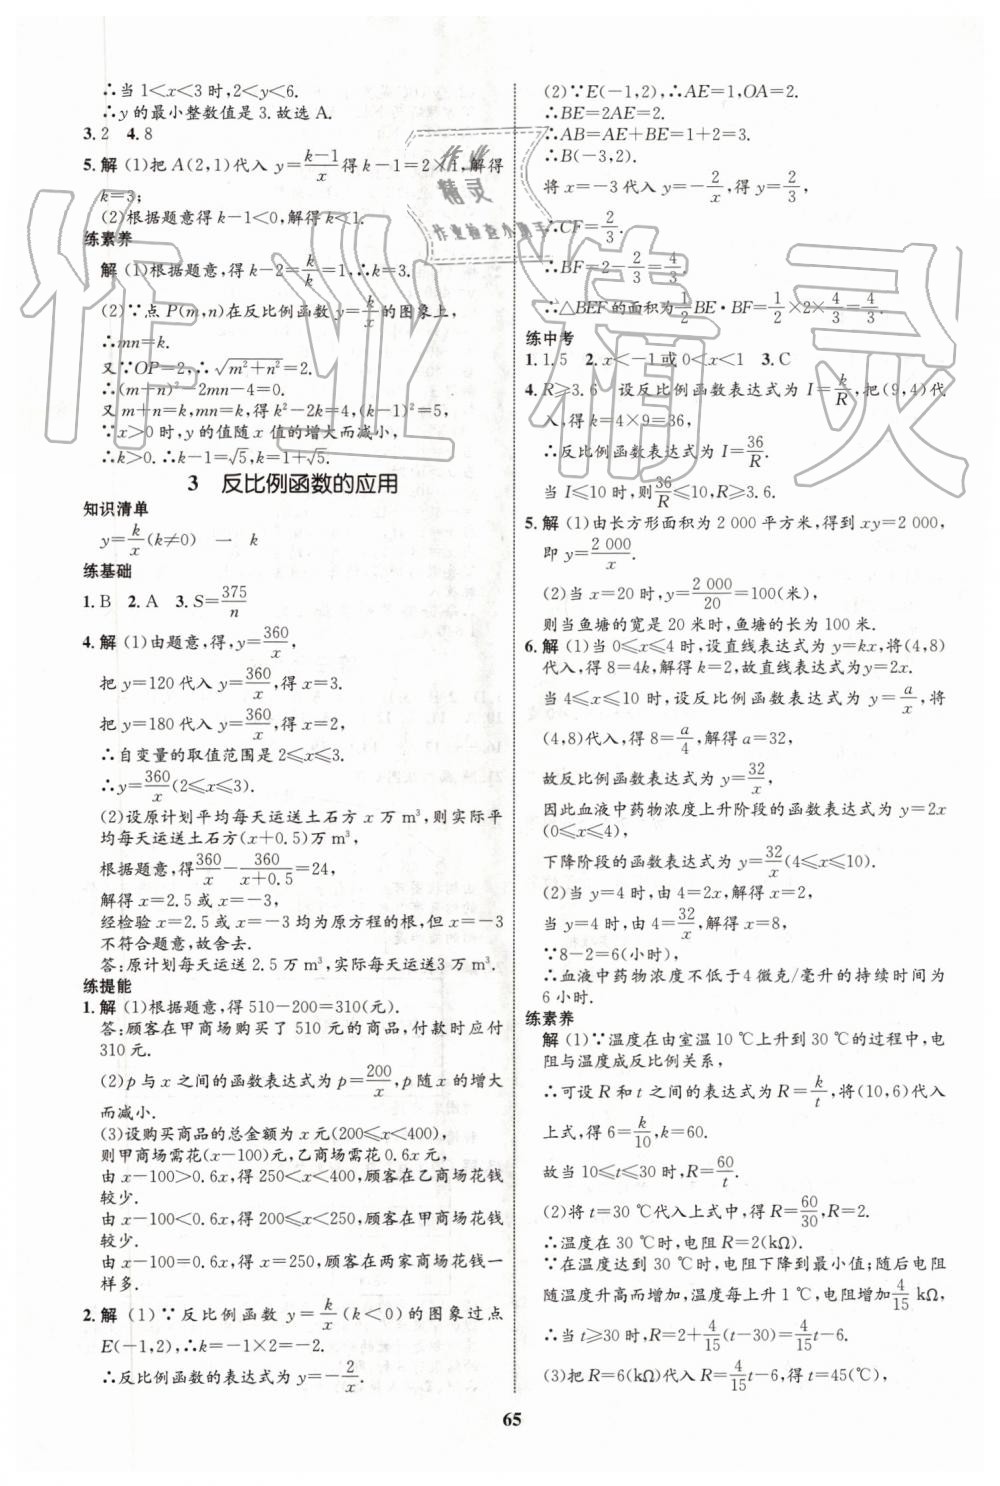 ∴当 1<x<3 时,2<y<6.
∴y 的最小整数值是 3.故选 A.
3. 2  4. 8
5. 解 (1)把 A(2,1)代入 y=(k-1)/x 得 k-1=2×1,解得
k=3;
(2)根据题意得 k-1<0,解得 k<1.
练素养
解 (1)根据题意,得 k-2=k/k=1,∴k=3.
(2)∵点 P(m,n)在反比例函数 y=k/x 的图象上,
∴mn=k.
又∵OP=2,∴√(m²+n²)=2.
∴(m+n)²-2mn-4=0.
又 m+n=k,mn=k,得 k²-2k=4,(k-1)²=5,
∵x>0 时,y 的值随 x 值的增大而减小,
∴k>0.∴k-1=√5,k=1+√5.
3 反比例函数的应用
知识清单
y=k/x(k≠0)  一  k
练基础
1. B  2. A  3. S=375/n
4. 解 (1)由题意,得,y=360/x,
把 y=120 代入 y=360/x,得 x=3.
把 y=180 代入 y=360/x,得 x=2,
∴自变量的取值范围是 2≤x≤3.
∴y=360/x(2≤x≤3).
(2)设原计划平均每天运送土石方 x 万 m³,则实际平
均每天运送土石方(x+0.5)万 m³,
根据题意,得 360/x-360/(x+0.5)=24,
解得 x=2.5 或 x=-3,
经检验 x=2.5 或 x=-3 均为原方程的根,但 x=-3
不符合题意,故舍去.
答:原计划每天运送 2.5 万 m³,实际每天运送3 万 m³.
练提能
1. 解 (1)根据题意,得 510-200=310(元).
答:顾客在甲商场购买了 510 元的商品,付款时应付
310元.
(2)p 与 x 之间的函数表达式为 p=200/x,p 随 x 的增大
而减小.
(3)设购买商品的总金额为 x 元(200≤x<400),
则甲商场需花(x-100)元,乙商场需花 0.6x 元,
由 x-100>0.6x,得 250<x<400,顾客在乙商场花钱
较少.
由 x-100<0.6x,得 200≤x<250,顾客在甲商场花钱
较少.
由 x-100=0.6x,得 x=250,顾客在两家商场花钱一
样多.
2. 解 (1)∵反比例函数 y=k/x(k<0)的图象过点
E(-1,2),∴k=-1×2=-2.
∴反比例函数的表达式为 y=-2/x.
(2)∵E(-1,2),∴AE=1,OA=2.
∴BE=2AE=2.
∴AB=AE+BE=1+2=3.
∴B(-3,2).
将 x=-3 代入 y=-2/x,得 y=2/3,
∴CF=2/3.
∴BF=2-2/3=4/3.
∴△BEF 的面积为 1/2 BE·BF=1/2×2×4/3=4/3.
练中考
1. 1.5  2. x<-1 或 0<x<1  3. C
4. R≥3.6  设反比例函数表达式为 I=k/R,把(9,4)代
入,得 k=4×9=36,
∴反比例函数表达式为 I=36/R.
当 I≤10 时,则 36/R≤10,R≥3.6.
5. 解 (1)由长方形面积为 2 000 平方米,得到 xy=2 000,
即 y=2 000/x.
(2)当 x=20 时,y=2 000/20=100(米),
则当鱼塘的宽是 20 米时,鱼塘的长为 100 米.
6. 解 (1)当 0≤x≤4 时,设直线表达式为 y=kx,将(4,8)
代入,得 8=4k,解得 k=2,故直线表达式为 y=2x.
当 4≤x≤10 时,设反比例函数表达式为 y=a/x,将
(4,8)代入,得 8=a/4,解得 a=32,
故反比例函数表达式为 y=32/x.
因此血液中药物浓度上升阶段的函数表达式为 y=2x
(0≤x≤4),
下降阶段的函数表达式为 y=32/x(4≤x≤10).
(2)当 y=4 时,由 4=2x,解得 x=2,
当 y=4 时,由 4=32/x,解得 x=8.
∵8-2=6(小时),
∴血液中药物浓度不低于 4 微克/毫升的持续时间为
6 小时.
练素养
解 (1)∵温度在由室温 10 ℃上升到 30 ℃的过程中,电
阻与温度成反比例关系,
∴可设 R 和 t 之间的表达式为 R=k/t,将(10,6)代入
上式,得 6=k/10,k=60.
故当 10≤t≤30 时,R=60/t.
(2)将 t=30 ℃代入上式中,得 R=60/30,R=2.
∴温度在 30 ℃时,电阻 R=2(kΩ).
∵在温度达到 30 ℃时,电阻下降到最小值;随后电阻
随温度升高而增加,温度每上升 1 ℃,电阻增加 4/15 kΩ,
∴当 t≥30 时,R=2+4/15(t-30)=4/15t-6.
(3)把 R=6(kΩ)代入 R=4/15t-6,得 t=45(℃),
65
作业精灵
作业精灵
作业检查小助手